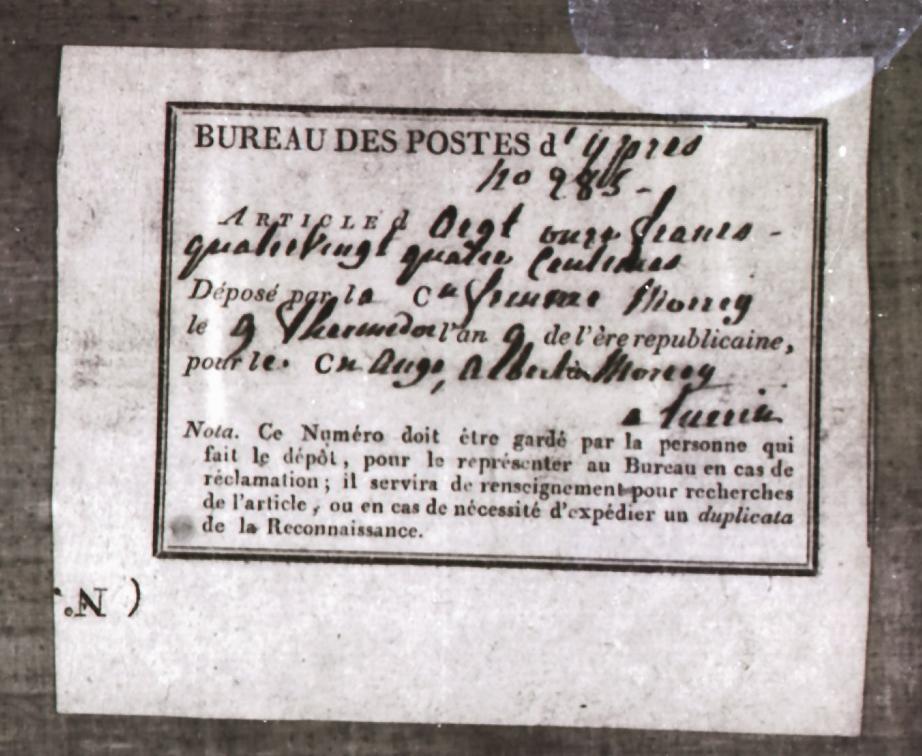 BUREAU DES POSTES d' Ypres
No 285 -
ARTICLE d Argt onze francs -
quatrevingt quatre Centimes
Déposé par la Cne femme Morrey
le 9 Thermidor l'an 9 de l'ère republicaine,
pour le. Cn Ange, Albertin Morrey
a Turin
Nota. Ce Numéro doit être gardé par la personne qui
fait le dépôt, pour le représenter au Bureau en cas de
réclamation ; il servira de renseignement pour recherches
de l'article, ou en cas de nécessité d'expédier un duplicata
de la Reconnaissance.
( N°.